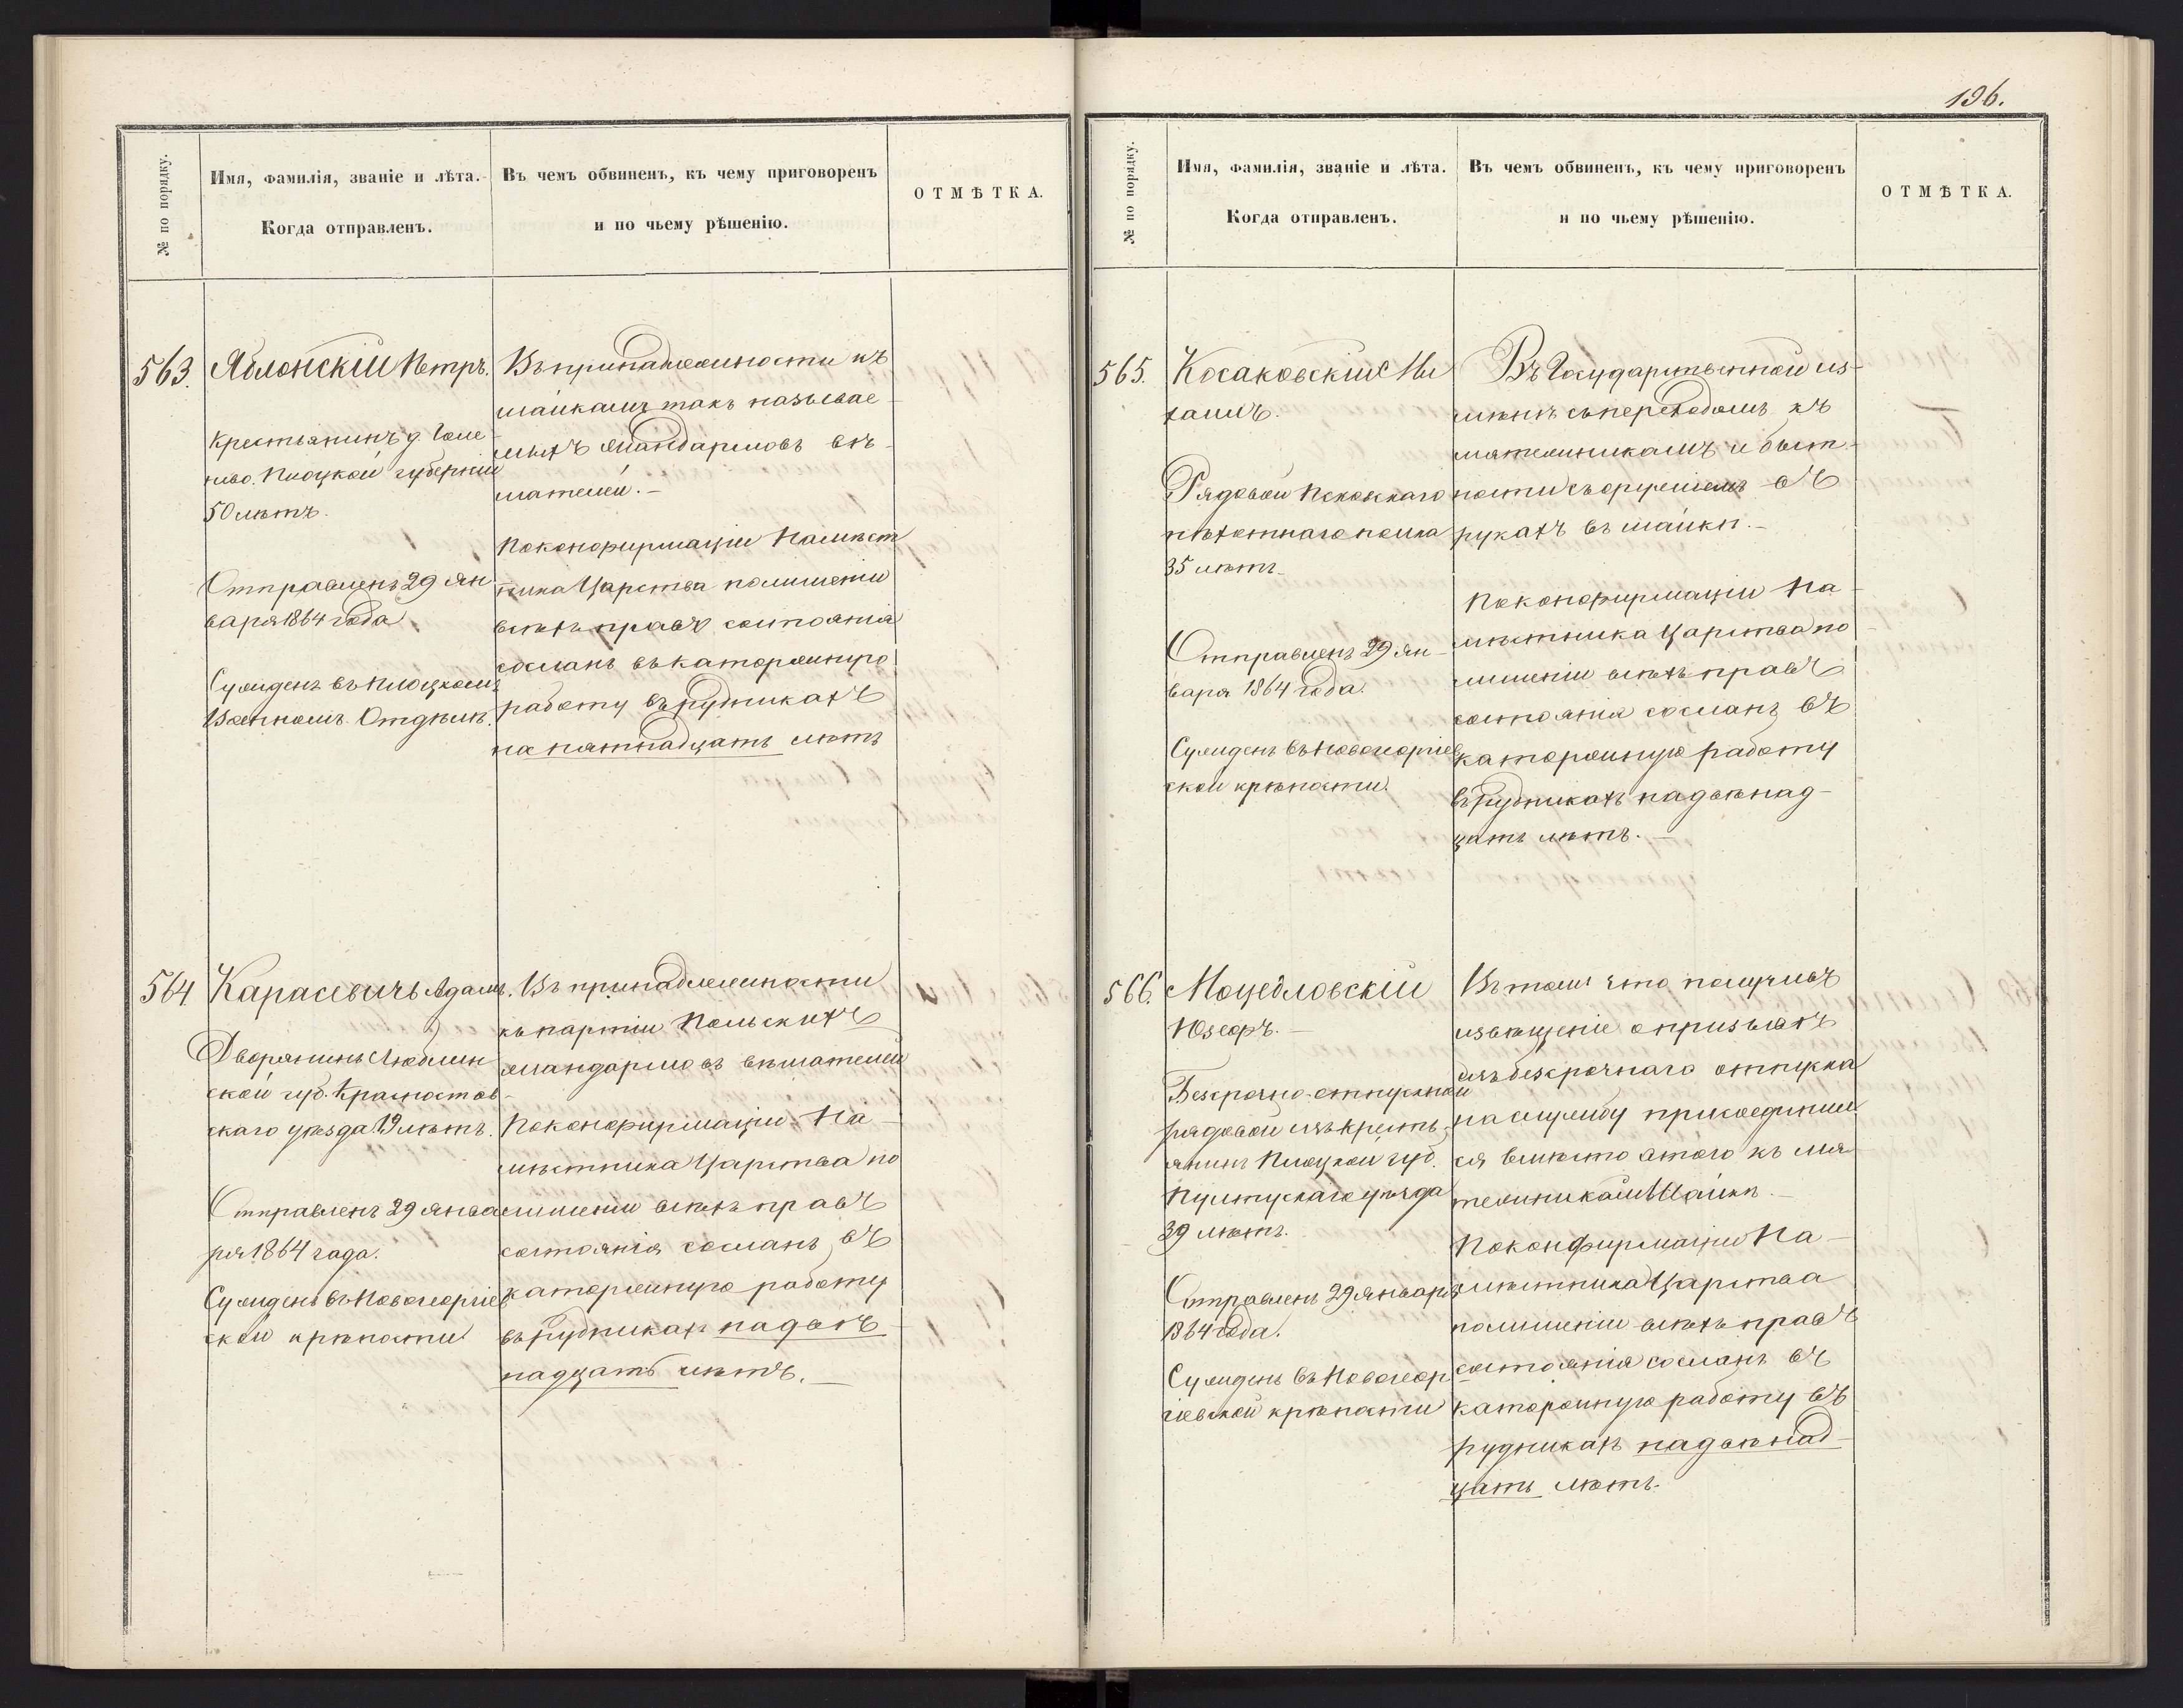 № по порядку.
Имя, фамилія, званіе и лѣта.
Когда отправленъ.
Въ чемъ обвиненъ, къ чему приговоренъ
и по чьему рѣшенію.
ОТМѢТКА.
563.
Яблонскій Петръ.
крестьянинъ д. Голе-
Плоцкой губерніи
50 лѣтъ.
Отправленъ 29 Ян
варя 1864 года
Сужденъ въ Плоцкомъ
Военномъ Отдѣлѣ.
Въ принадлежности къ
шайкамъ такъ называе-
мыхъ жандармовъ вѣ-
шателей.-
По конфирмаціи Намѣст
ника Царства по лишеніи
всѣхъ правъ состоянія
сосланъ въ каторжную
работу въ рудникахъ
на пятнадцать лѣтъ
564
Карасевичъ Адамъ.
Дворянинъ Люблин
ской губ. Красностав-
скаго уѣзда 19 лѣтъ.
Отправленъ 29 Янва
ря 1864 года.
Сужденъ въ Новогеоргіев
ской крѣпости
Въ принадлежности
къ партіи Польскихъ
жандармовъ вѣшателей
По конфирмаціи На-
мѣстника Царства по
лишеніи всѣхъ правъ
состоянія сосланъ въ
каторжную работу
въ рудникахъ на двѣ
надцать лѣтъ.-
196.
№ по порядку.
Имя, фамилія, званіе и лѣта.
Когда отправленъ.
Въ чемъ обвиненъ, къ чему приговоренъ
и по чьему рѣшенію.
ОТМѢТКА.
565.
Косаковскій Ми
хаилъ.
Рядовой Псковскаго
пѣхотнаго полка
35 лѣтъ.
Отправленъ 29 Ян-
варя 1864 года.
Сужденъ въ Новогеоргіев
ской крѣпости.
Въ Государственной из-
мѣнѣ съ переходомъ къ
мятежникамъ и быт-
ности съ оружіемъ въ
рукахъ въ шайкѣ.-
По конфирмаціи На-
мѣстника Царства по
лишеніи всѣхъ правъ
состоянія сосланъ въ
каторжную работу
въ рудникахъ на двѣнад-
цать лѣтъ.-
566.
Моцедловскій
Юзефъ.-
Безсрочно-отпускной
рядовой изъ кресть-
янинъ Плоцкой губ.
Пултускаго уѣзда
39 лѣтъ.
Отправленъ 29 Января
1864 года.
Сужденъ въ Новогеор
гіевской крѣпости
Въ томъ что получивъ
извѣщеніе о призывѣ
изъ безсрочнаго отпуска
на службу присоединил
ся вмѣсто этого къ мя
тежникамъ Шайкѣ.-
По конфирмаціи На-
мѣстника Царства
по лишеніи всѣхъ правъ
состоянія сосланъ въ
каторжную работу въ
рудникахъ на двѣнад-
цать лѣтъ.